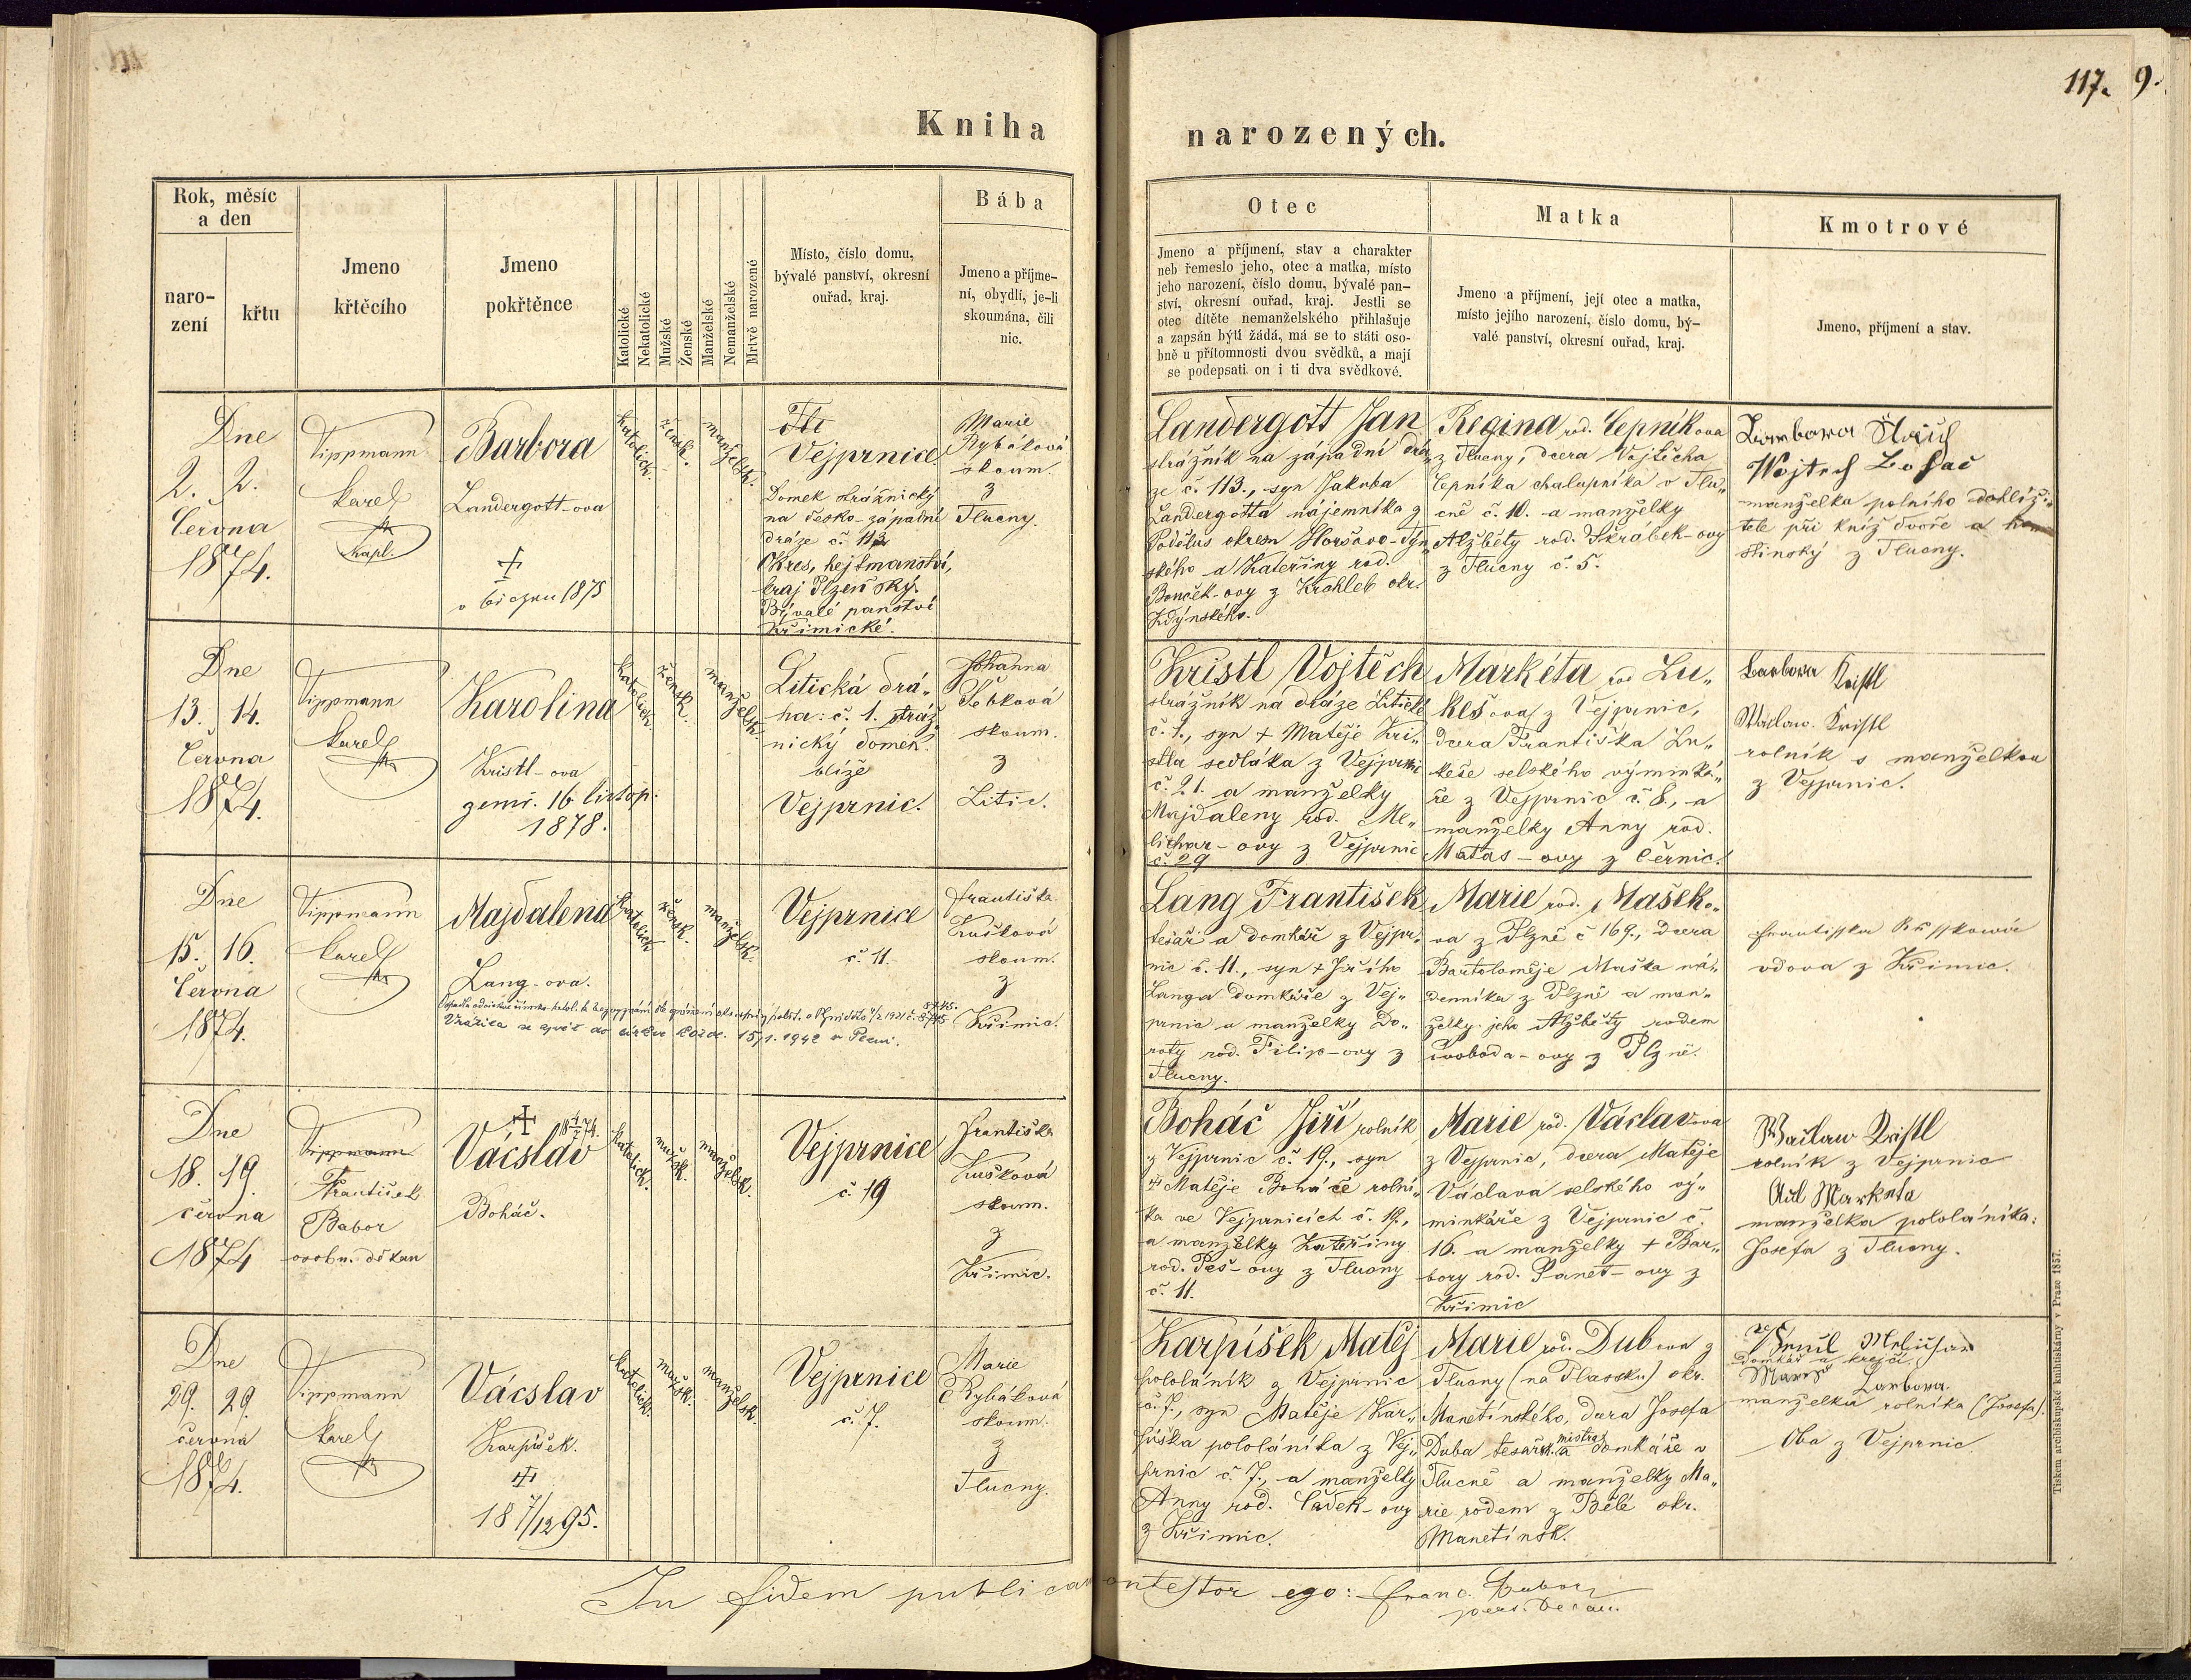 117. 9.
Kniha narozených.
Rok, měsíc
a den
naro-
zení
křtu
Jmeno
křtěcího
Jmeno
pokřtěnce
Katolické
Nekatolické
Mužské
Ženské
Manželské
Nemanželské
Mrtvě narozené
Místo, číslo domu,
bývalé panství, okresní
ouřad, kraj.
Bába
Jmeno a příjme-
ní, obydlí, je-li
skoumána, čili
nic.
Otec
Jmeno a příjmení, stav a charakter
neb řemeslo jeho, otec a matka, místo
jeho narození, číslo domu, bývalé pan-
ství, okresní ouřad, kraj. Jestli se
otec dítěte nemanželského přihlašuje
a zapsán býti žádá, má se to státi oso-
bně u přítomnosti dvou svědků, a mají
se podepsati on i ti dva svědkové.
Matka
Jmeno a příjmení, její otec a matka,
místo jejího narození, číslo domu, bý-
valé panství, okresní ouřad, kraj.
Kmotrové
Jmeno, příjmení a stav.
Dne
2. 2.
Června
1874.
Tippmann
Karel
kapl.
Barbora
Landergott-ova
v březnu 1875
katolick.
žensk.
manželsk.
Vejprnice.
Domek strážnický
na česko-západní
dráze č. 113
Okres, hejtmanství,
kraj Plzeňský.
Bývalé panství
Křimické.
Marie
Rybáková
skoum.
z
Tlucny.
Landergott Jan
strážník na západní drá„
ze č. 113., syn Jakuba
Landergotta nájemníka z
okresu Horšovo-Týn„
ského a Kateřiny rod.
Bouček-ovy z Krohleb okr.
Kdýnského.
Regina rod. Čepníkova
z Tlucny, dcera Vojtěcha
Čepníka chalupníka v Tlu„
cné č. 10. a manželky
Alžběty rod. Škrábek-ovy
z Tlucny č. 5.
Wojtech
manželka polního dohlíži„
tele při kníž dvoře a
z Tlucny.
Dne
13. 14.
Června
1874.
Tippmann
Karel
Karolina
Kristl-ova
zemř. 16 listop.
1878.
katolick.
žensk.
manželsk.
Litická drá„
ha: č. 1. stráž„
nický domek.
blíže
Vejprnic.
Johanna
skoum.
z
Litic.
Kristl Vojtěch
strážník na dráze Litické
č. 1., syn + Matěje Kri„
stla sedláka z Vejprnic
č. 21. a manželky
Majdaleny rod. Me„
lichar-ovy z Vejprnic
č. 29
Markéta rod Lu„
keš ova z Vejprnic,
dcera Františka Lu„
keše selského výminká„
ře z Vejprnic č. 8., a
manželky Anny rod.
Matas-ovy z Černic.
Barbora Kristl
Kristl
rolník s manželkou
z Vejprnic.
Dne
15. 16.
Června
1874.
Tippmann
Karel
Majdalena
Lang-ova.
katolick
žensk.
manželsk.
Vejprnice
č. 11.
Františka
Kušková
skoum.
z
Křimic.
Lang František
tesař a domkář z Vejpr„
nic č. 11., syn + Jiřího
Langa domkáře z Vej„
prnic a manželky Do„
roty rod. Filip-ovy z
Tlucny.
Marie rod. Mašek„
ova z Plzně č 169., dcera
Bartoloměje Maška ná„
denníka z Plzně a man„
želky jeho Alžběty rodem
Svoboda-ovy z Plzně.
vdova z Křimic.
Dne
18. 19.
června
1874
Tippmann
František
Babor
osobn. děkan
Vácslav
Boháč.
katolick.
mužsk.
manželsk.
Vejprnice
č. 19
Františka
Kušková
skoum.
z
Křimic.
Boháč Jiří rolník
z Vejprnic č. 19., syn
+ Matěje Boháče rolní„
ka ve Vejprnicích č. 19.,
a manželky Kateřiny
rod. Peš-ovy z Tlucny
č. 11.
Marie rod. Václavova
z Vejprnic, dcera Matěje
Václava selského vý„
minkáře z Vejprnic č.
16. a manželky + Bar„
bory rod. Panet-ovy z
Křimic
Kristl
rolník z Vejprnic
Markéta
manželka pololáníka:
Josefa z Tlucny.
Dne
29. 29.
června
1874.
Tippmann
Karel
Vácslav
Karpíšek.
18 7/12 95.
katolick.
mužsk.
manželsk.
Vejprnice
č. 7.
Marie
Rybáková
skoum.
z
Tlucny.
Karpíšek Matěj
pololáník z Vejprnic
č. 7., syn Matěje Kar„
píška pololáníka z Vej„
prnic č. 7., a manželky
Anny rod. Čádek-ovy
z Křimic.
Marie rod. Dubova z
Tlucny (na Plassku) okr.
Manetínského, dcera Josefa
Duba tesařsk. mistra a domkáře v
Tlucné a manželky Ma„
rie rodem z Bělé okr.
Manetínsk.
domkář a krejčí.
Barbora.
manželka rolníka (Josefa).
Oba z Vejprnic.
In fidem publicam testor ego: Franc. Babor
pers. Decan.
Tiskem arcibiskupské knihtiskárny v Praze 1857.